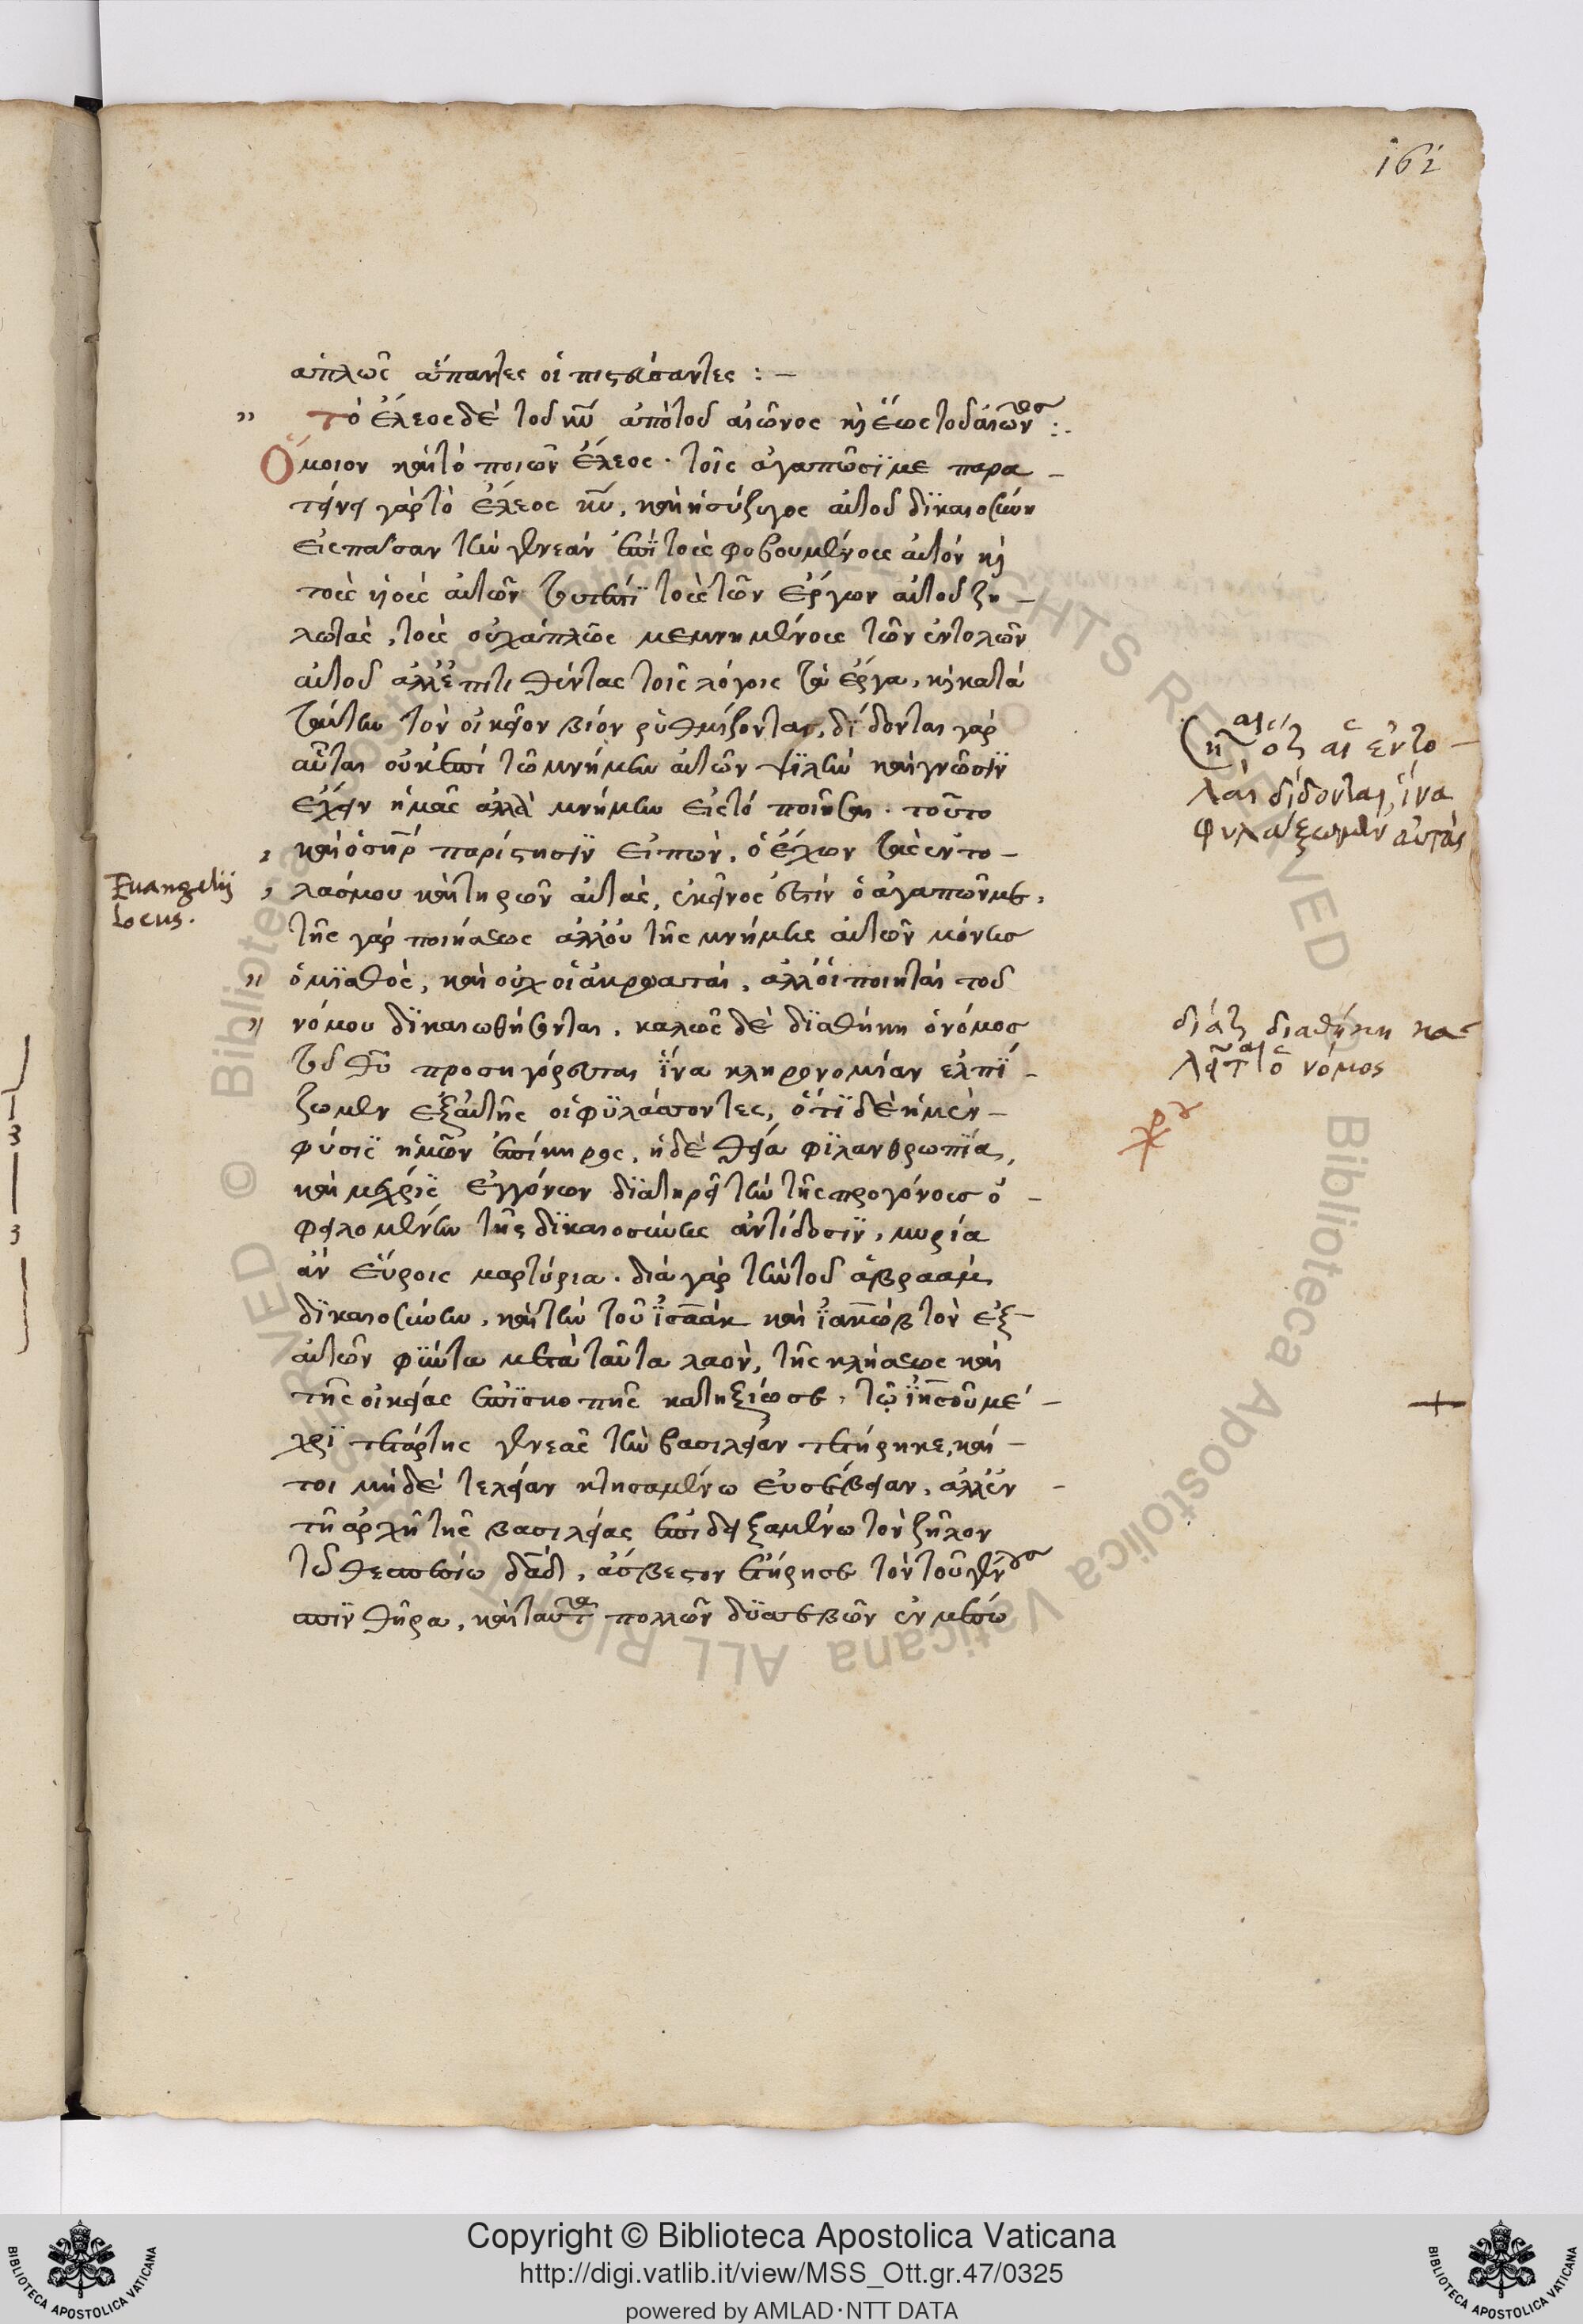 162
ἁπλῶς ἅπαντες οἱ πιστεύσαντες : —
Τὸ ἔλεος δὲ τοῦ κυ ἀπὸ τοῦ αἰῶνος καὶ ἕως τοῦ αἰῶνος :.
Ὅμοιον καὶ τὸ ποιῶν ἔλεος · τοῖς ἀγαπῶσί με παρα —
τείνει γὰρ τὸ ἔλεος κυ, καὶ ἡ σύζυγος αὐτοῦ δικαιοσύνη
εἰς πᾶσαν τὴν γενεὰν ἐπὶ τοὺς φοβουμένους αὐτὸν καὶ
τοὺς υἱοὺς αὐτῶν τουτέστι τοὺς τῶν ἔργων αὐτοῦ ζη —
λωτάς, τοὺς οὐχ ἁπλῶς μεμνημένους τῶν ἐντολῶν
αὐτοῦ ἀλλ' ἐπιτιθέντας τοῖς λόγοις τὰ ἔργα, καὶ κατὰ
ταύτην τὸν οἰκεῖον βίον ῥυθμίζοντας, δίδονται γὰρ
αὗται οὐκ ἐπὶ τῶ μνήμην αὐτῶν ψιλὴν καὶ γνῶσιν
ἔχειν ἡμᾶς ἀλλὰ μνήμην εἰς τὸ ποιῆσαι · τοῦτο
καὶ ὁ σηρ παρίστησιν εἰπὼν, ὁ ἔχων τὰς ἐντο —
Euangelij
locus.
λάς μου καὶ τηρῶν αὐτάς, ἐκεῖνος ἐστὶν ὁ ἀγαπῶν με,
τῆς γὰρ ποιήσεως ἀλλ' οὐ τῆς μνήμης αὐτῶν μόνης
ὁ μισθός, καὶ οὐχ οἱ ἀκροαταὶ, ἀλλ' οἱ ποιηταὶ τοῦ
νόμου δικαιωθήσονται, καλῶς δὲ διαθήκη ὁ νόμος
τοῦ θυ προσηγόρευται ἵνα κληρονομίαν ἐλπί —
ζωμεν ἐξ αὐτῆς οἱ φυλάσσοντες, ὅτι δὲ ἡ μὲν —
φύσις ἡμῶν ἐπίκηρος, ἡ δὲ θεία φιλανθρωπία,
καὶ μέχρις ἐγγόνων διατηρεῖ τὴν τῆς προγόνοις ὀ —
φειλομένην τῆς δικαιοσύνης ἀντίδοσιν, μυρία
ἂν εὕροις μαρτύρια · διὰ γὰρ τὴν τοῦ ἀβραὰμ
δικαιοσύνην, καὶ τὴν τοῦ ἰσαὰκ καὶ ἰακὼβ τὸν ἐξ —
αὐτῶν φύντα μετὰ ταῦτα λαὸν, τῆς κλήσεως καὶ
τῆς οἰκείας ἐπισκοπῆς κατηξίωσε, τῷ ἰησοῦ μέ —
χρι τετάρτης γενεᾶς τὴν βασιλείαν τετήρηκε, καί —
τοι μηδὲ τελείαν κτησαμένω εὐσέβειαν, ἀλλ' ἐν —
τῇ ἀρχῇ τῆς βασιλείας ἐπιδειξαμένω τὸν ζῆλον
τῶ θεσπεσίω δαδ, ἄσβεστον ἐτήρησε τὸν τοῦ γένους
σπινθῆρα, καὶ ταῦτα πολλῶν δυσσεβῶν ἐν μέσω
ὅτι αἱ ἐντο —
λαὶ δίδονται, ἵνα
φυλάξωμεν αὐτάς
διατί διαθήκη κα
λεῖται ὁ νόμος
Copyright © Biblioteca Apostolica Vaticana
http://digi.vatlib.it/view/MSS_Ott.gr.47/0325
powered by AMLAD·NTT DATA